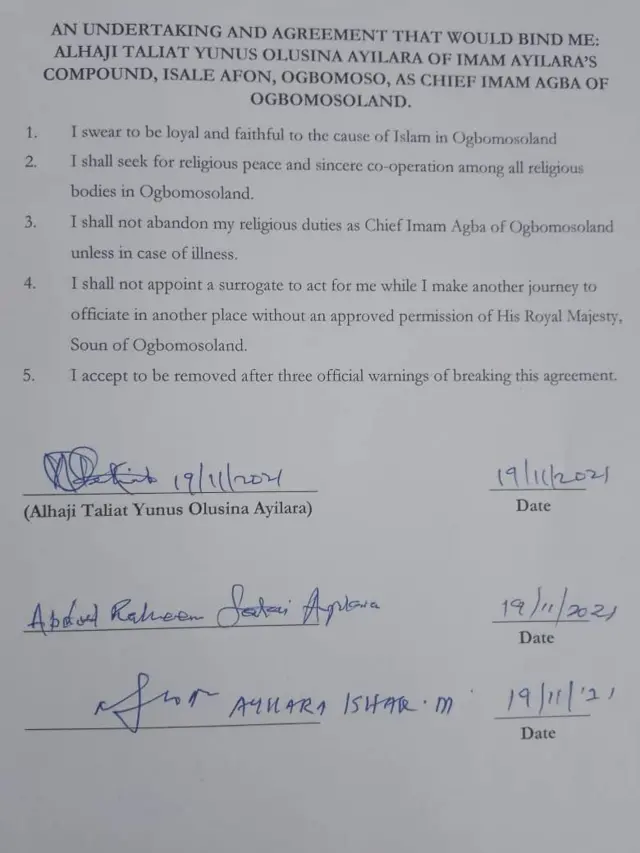 AN UNDERTAKING AND AGREEMENT THAT WOULD BIND ME:
ALHAJI TALIAT YUNUS OLUSINA AYILARA OF IMAM AYILARA'S
COMPOUND, ISALE AFON, OGBOMOSO, AS CHIEF IMAM AGBA OF
OGBOMOSOLAND.
1. I swear to be loyal and faithful to the cause of Islam in Ogbomosoland
2. I shall seek for religious peace and sincere co-operation among all religious
bodies in Ogbomosoland.
3. I shall not abandon my religious duties as Chief Imam Agba of Ogbomosoland
unless in case of illness.
4. I shall not appoint a surrogate to act for me while I make another journey to
officiate in another place without an approved permission of His Royal Majesty,
Soun of Ogbomosoland.
5. I accept to be removed after three official warnings of breaking this agreement.
19/11/2021 19/11/2021
(Alhaji Taliat Yunus Olusina Ayilara) Date
Abdul Raheem Ayilara 19/11/2021
Date
AYILARA ISHAR. M 19/11/'21
Date